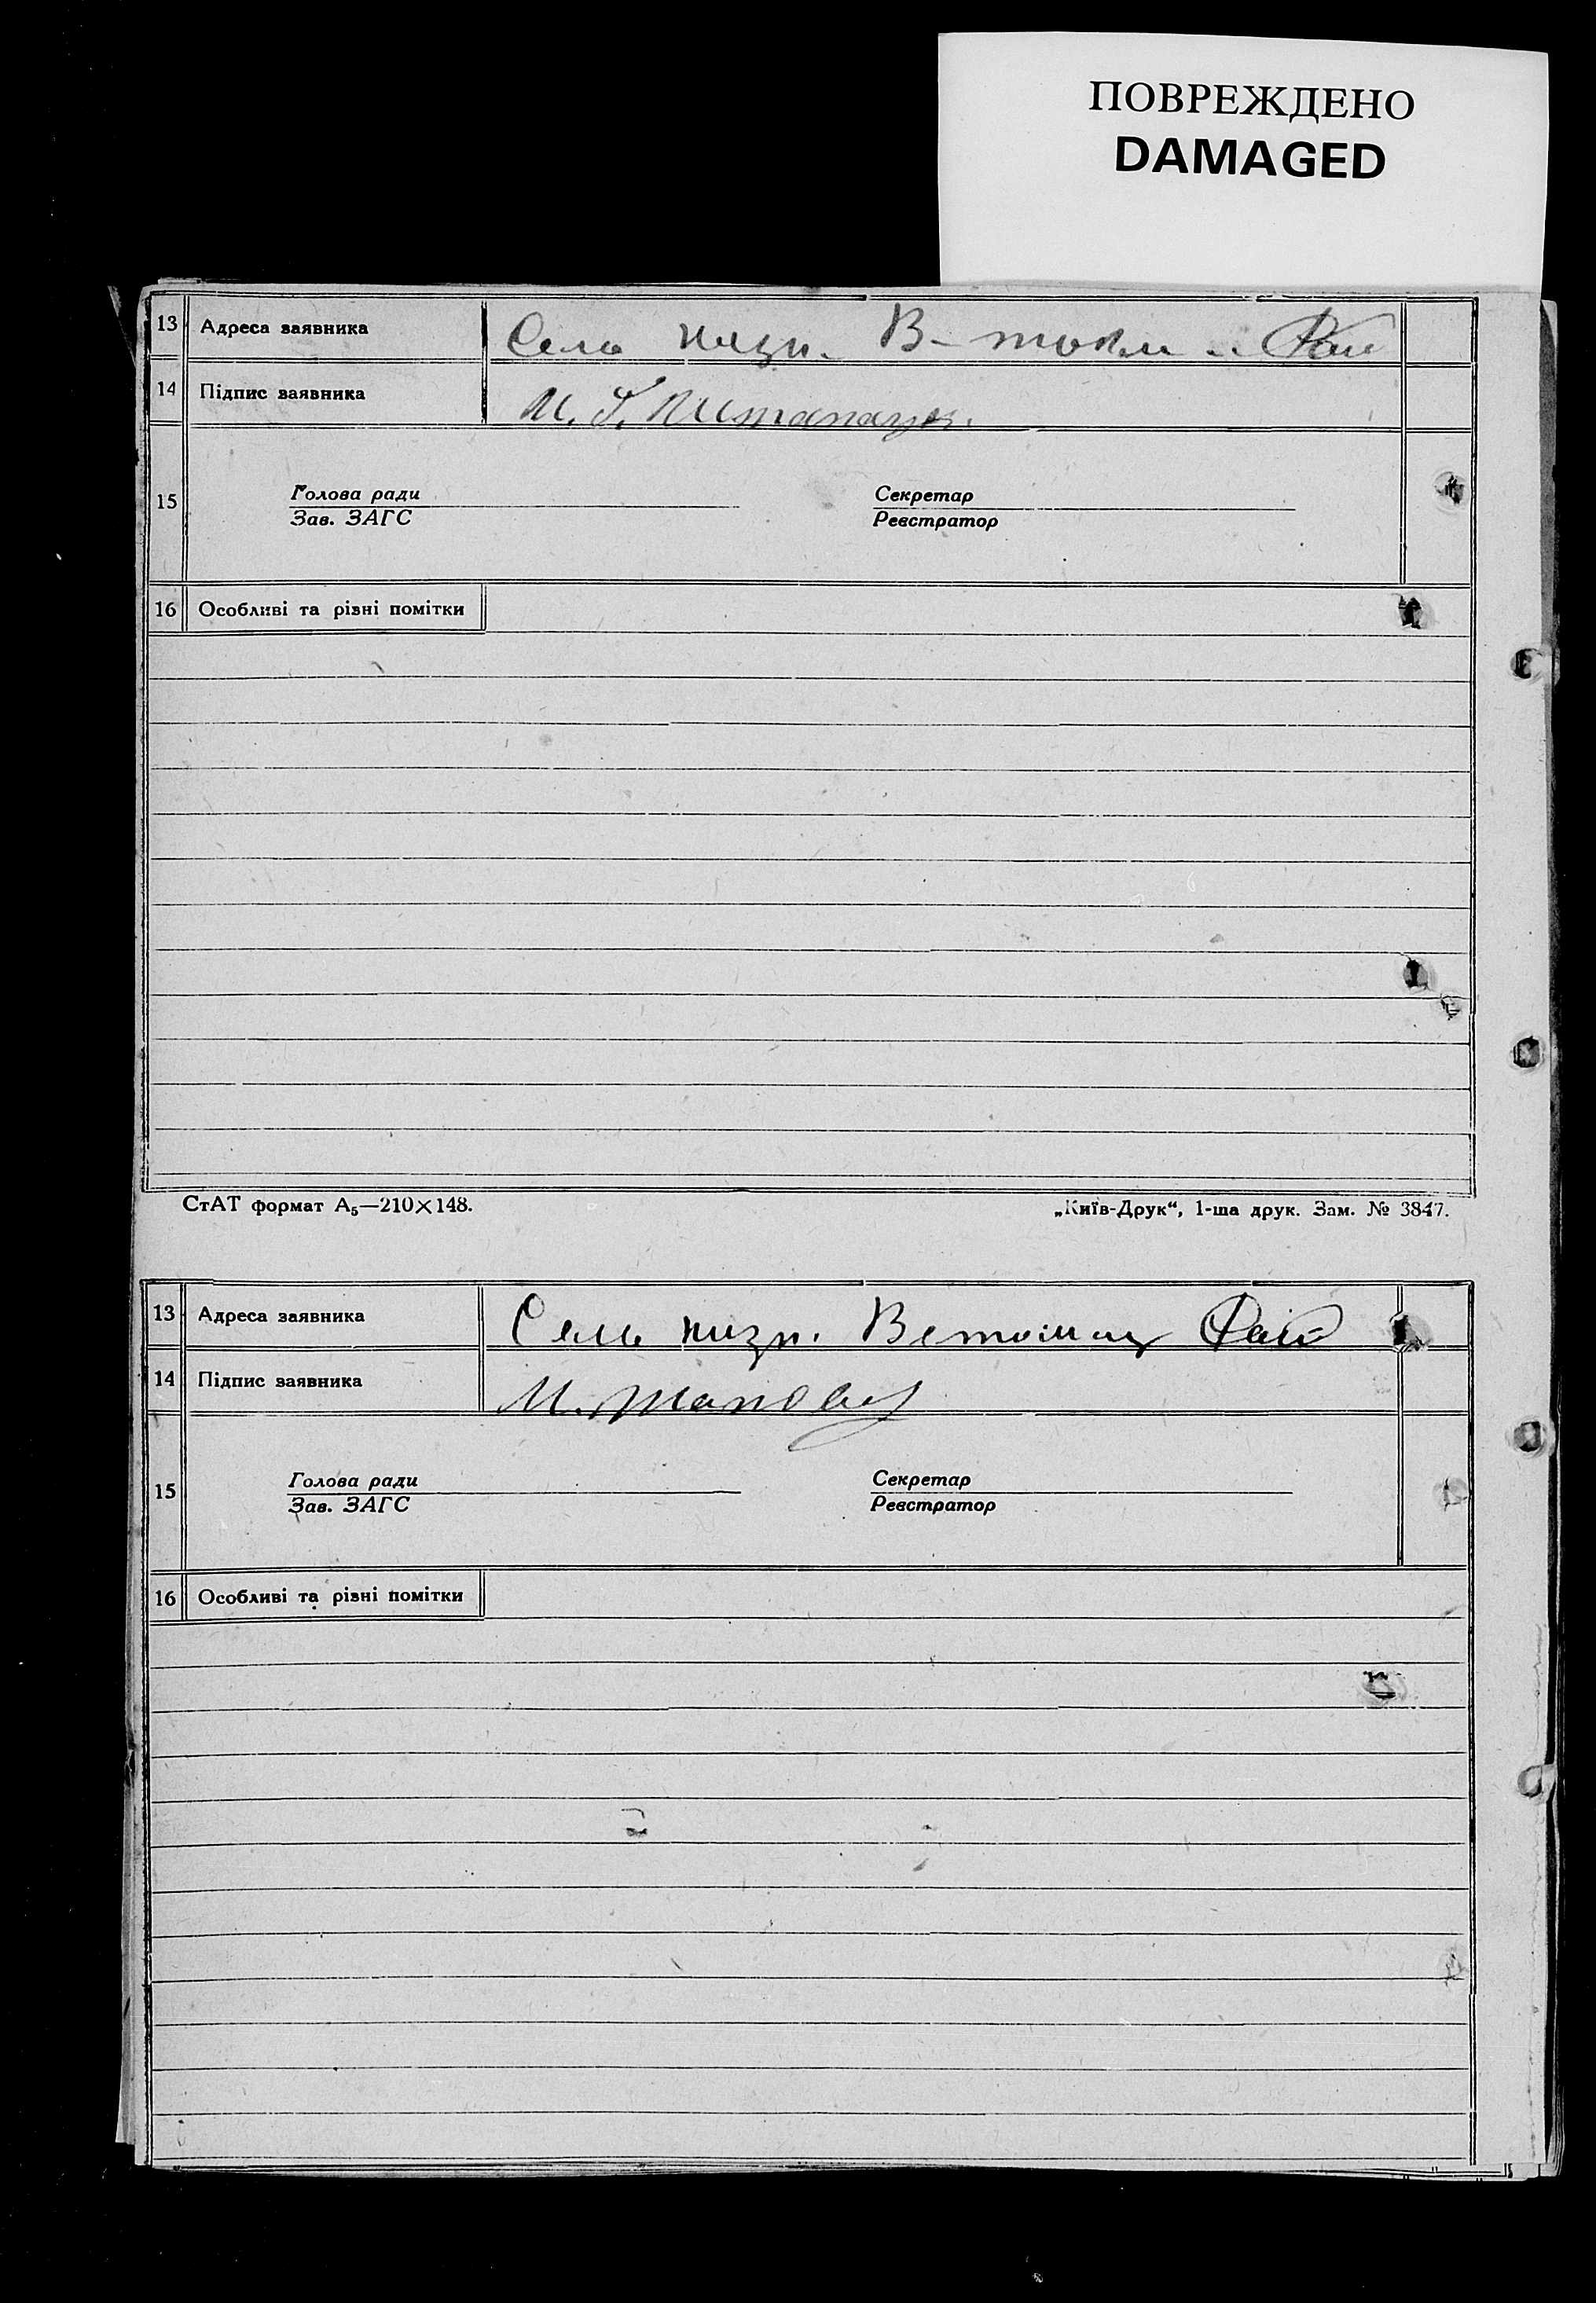 ПОВРЕЖДЕНО
DAMAGED
13 Адреса заявника Село низн. В-
14 Підпис заявника И.
15 Голова ради Секретар
Зав. ЗАГС Реєстратор
16 Особливі та різні помітки
СтАТ формат А₅—210×148. „Київ-Друк“, 1-ша друк. Зам. № 3847.
13 Адреса заявника Село низн. Рай
14 Підпис заявника
15 Голова ради Секретар
Зав. ЗАГС Реєстратор
16 Особливі та різні помітки